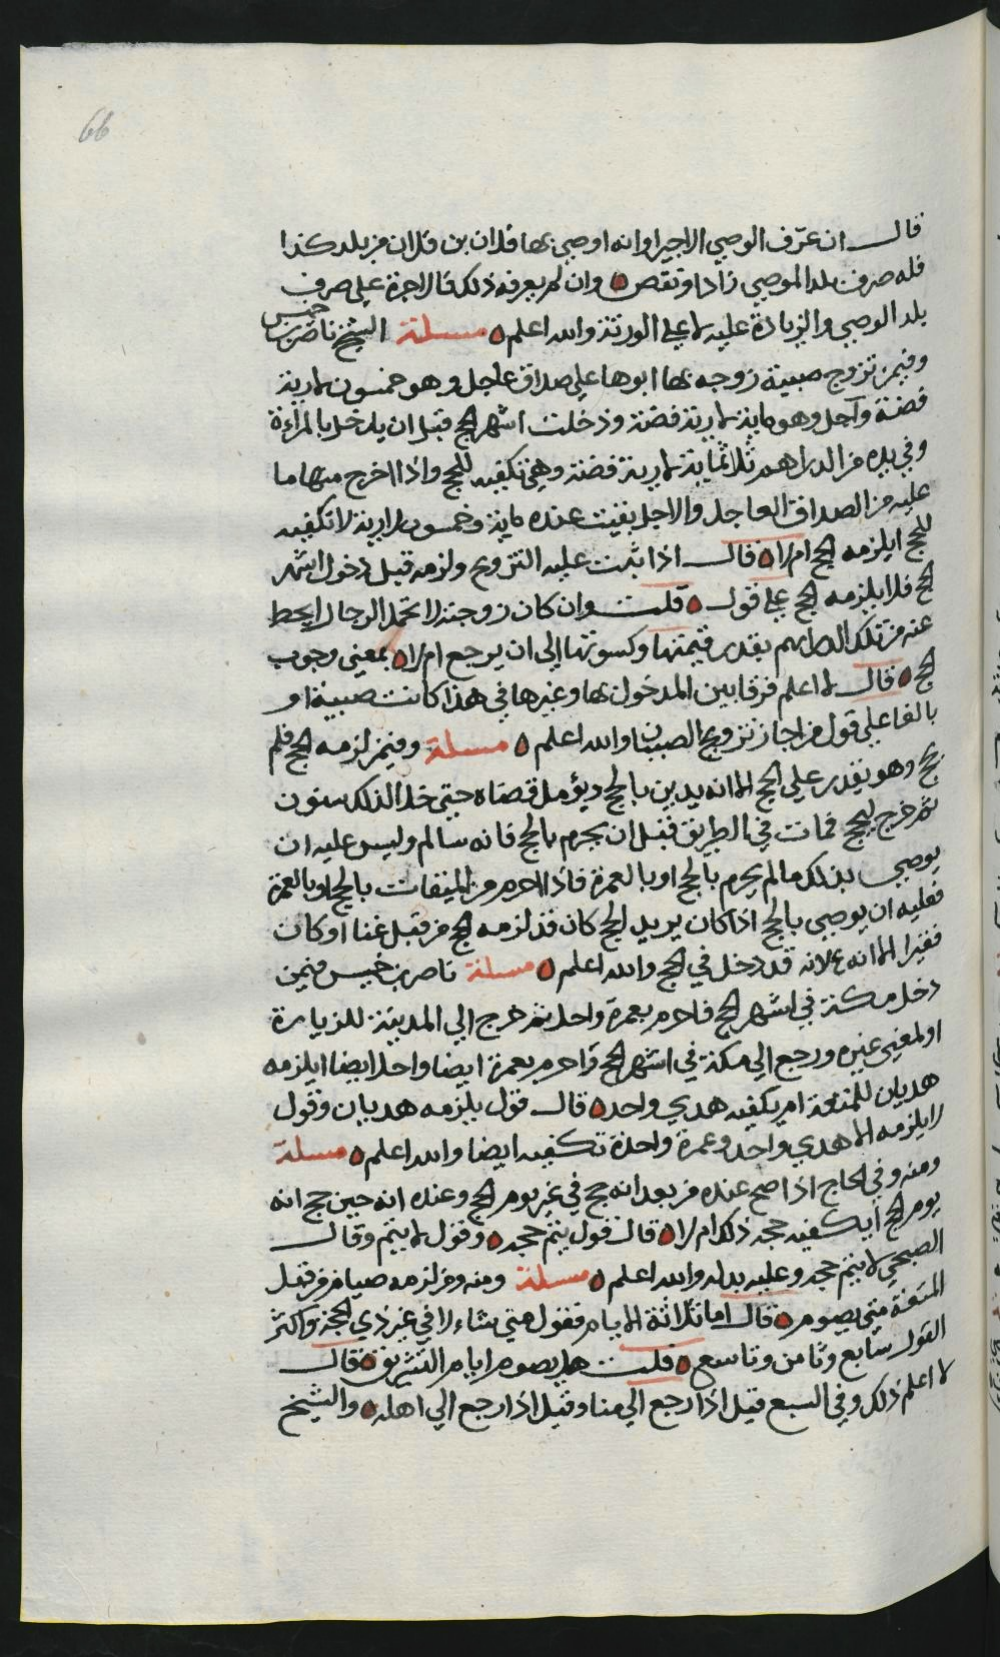 66
قال ان عرّف الوصي الاجير اوانه اوصي بها فلان بن فلان من بلد كذا
فله صرف بلد الموصي زاد او نقص ه وان لم يعرفه ذلك فالاجرة علي صرف
بلد الوصي والزيادة عليه لا علي الورثة والله اعلم ه مسئلة الشيخ ناصر بن خميس
وفيمن تزوج صبية زوجه بها ابوها علي صداق عاجل وهو خمسون لارية
فضة وآجل وهو ماية لارية فضة ودخلت اشهر الحج قبل ان يدخل بالمرأة
وفي يده من الدراهم ثلاثماية لارية فضة وهي تكفيه للحج واذا اخرج منها ما
عليه من الصداق العاجل والاجل بقيت عنده ماية وخمسون لارية لا تكفيه
للحج ايلزمه الحج ام لا ه قال اذا ثبت عليه التزويج ولزمه قبل دخول اشهر
الحج فلا يلزمه الحج علي قول ه قلت وان كان زوجته لا تحمل الرجال ايحط
عنه من تلك الدراهم بقدر قيمتها وكسوتها الي ان يرجع ام لا ه بمعني وجوب
الحج ه قال لا اعلم فرقا بين المدخول بها وغيرها في هذا كانت صبية او
بالغا علي قول من اجاز تزويج الصبيان والله اعلم ه مسئلة وفيمن لزمه الحج فلم
يحج وهو يقدر علي الحج الا انه يدين بالحج ويؤمل قضاه حتي خلا لذلك سنون
ثم خرج ليحج فمات في الطريق قبل ان يحرم بالحج فانه سالم وليس عليه ان
يوصي بذلك ما لم يحرم بالحج او بالعمرة فاذا احرم من الميقات بالحج او بالعمرة
فعليه ان يوصي بالحج اذا كان يريد الحج كان قد لزمه الحج من قبل غنا او كان
فقيرا الا انه لانه قد دخل في الحج والله اعلم ه مسئلة ناصر بن خميس فيمن
دخل مكة في اشهر الحج فاحرم بعمرة واحل ثم خرج الي المدينة للزيارة
او لمعني غيره ورجع الي مكة في اشهر الحج واحرم بعمرة ايضا واحل ايضا ايلزمه
هديان للمتعة ام يكفيه هدي واحد ه قال قول يلزمه هديان وقول
لا يلزمه الا هدي واحد وعمرة واحدة تكفيه ايضا والله اعلم ه مسئلة
ومنه وفي الحاج اذا صح عنده من بعد انه حج في غير يوم الحج وعنده انه حين حج انه
يوم الحج أيكفيه حجه ذلك ام لا ه قال قول يتم حجه ه وقول لا يتم وقال
الصبحي لا يتم حجه وعليه بدله والله اعلم ه مسئلة ومنه ومن لزمه صيام من قبل
المتعة متي يصوم ه قال اما ثلاثة الايام فقول متي شاء لا في غير ذي الحجة واكثر
القول سابع وثامن وتاسع ه قلت هل يصوم ايام التشريق ه قال
لا اعلم ذلك وفي السبع قيل اذا رجع الي منا وقيل اذا رجع الي اهله ه والشيخ